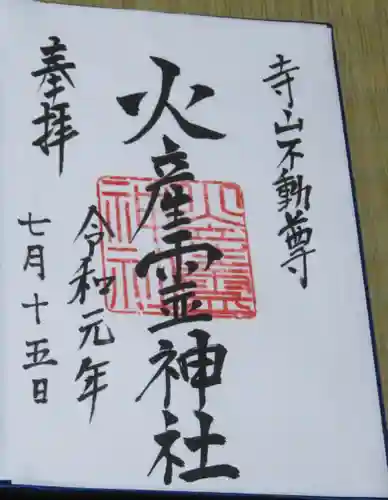 寺山不動尊
火産霊神社
火産霊神社
奉拝
令和元年
七月十五日